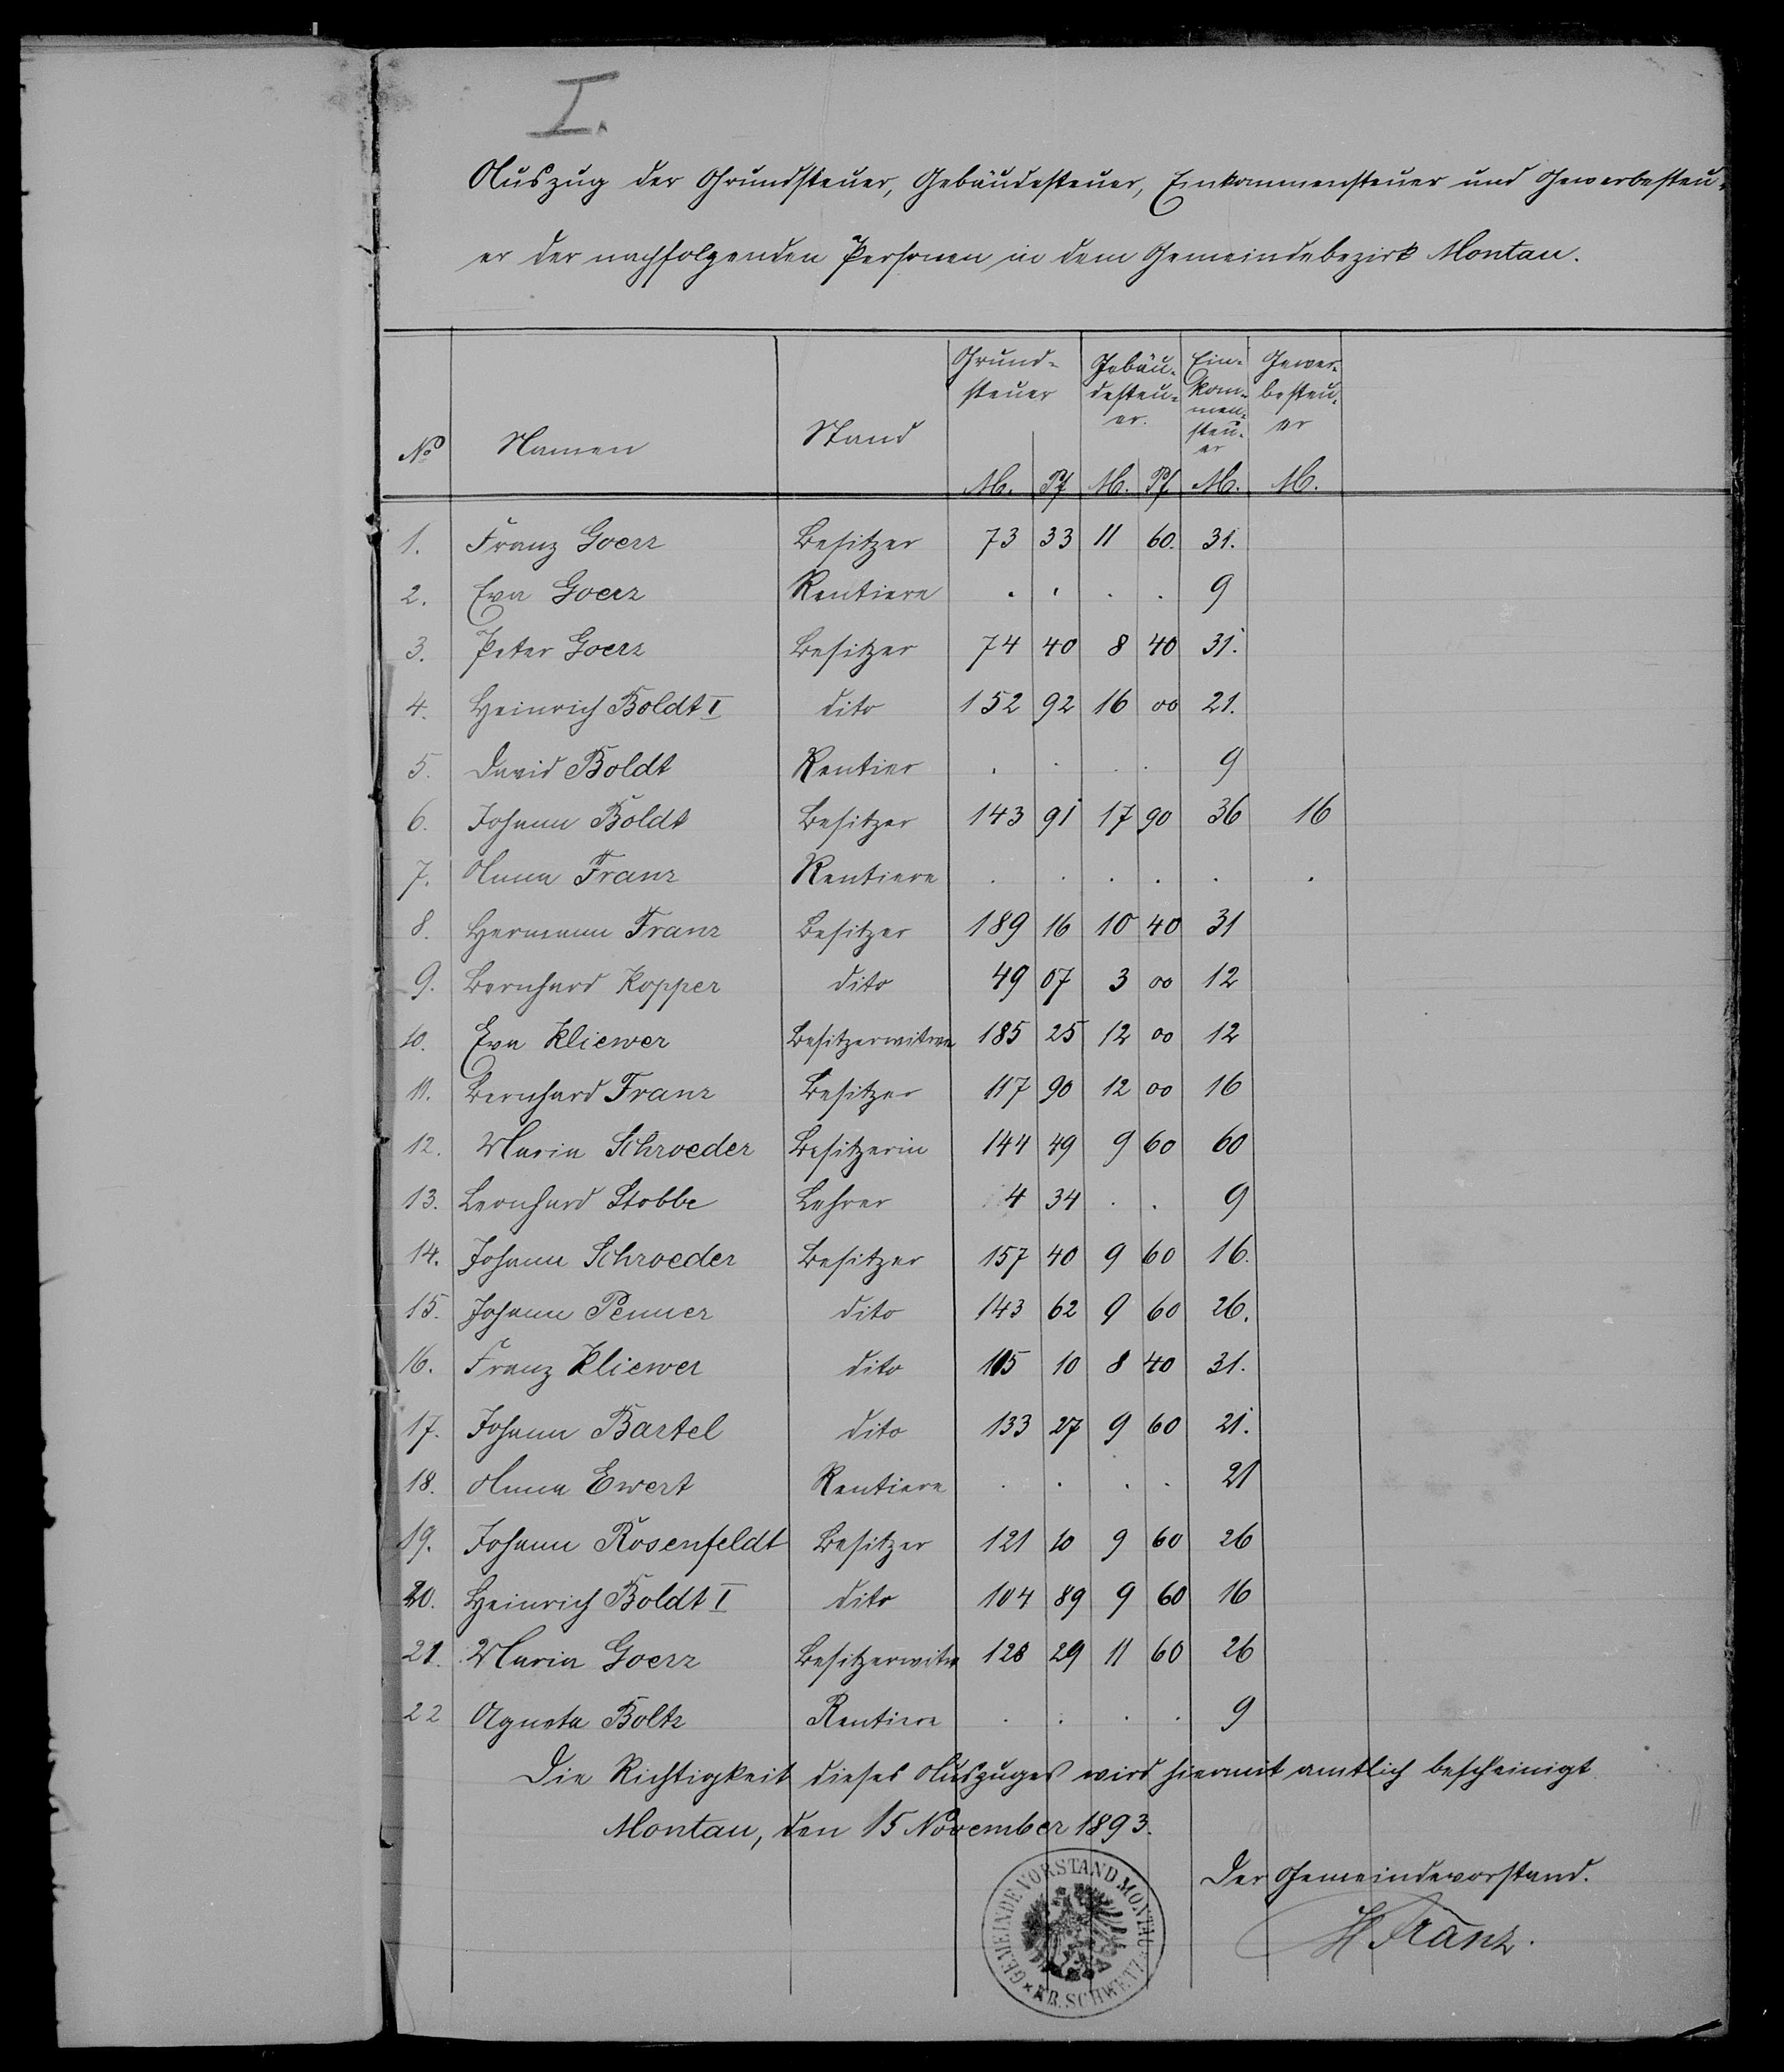 I.
Auszug der Grundsteuer, Gebäudesteuer, Einkommensteuer und Gewerbesteu-
er der nachfolgenden Personen in dem Gemeindebezirk Montau.
No Namen Stand Grund-steuer Gebäu-desteu-er. Ein-kom-men-steu-er Gewer-besteu-er
M. Pf M. Pf M. M.
1. Franz Goerz Besitzer 73 33 11 60. 31.
2. Eva Goerz Rentiere . . . . 9
3. Peter Goerz Besitzer 74 40 8 40 31.
4. Heinrich Boldt I dito 152 92 16 00 21.
5. David Boldt Rentier . . . . 9
6. Johann Boldt Besitzer 143 91 17 90 36 16
7. Anna Franz Rentiere . . . . . .
8. Hermann Franz Besitzer 189 16 10 40 31
9. Bernhard Kopper dito 49 07 3 00 12
10. Eva Kliewer Besitzerwitwe 185 25 12 00 12
11. Bernhard Franz Besitzer 117 90 12 00 16
12. Maria Schroeder Besitzerin 144 49 9 60 60
13. Bernhard Stobbe Lehrer 4 34 . . 9
14. Johann Schroeder Besitzer 157 40 9 60 16.
15. Johann Penner dito 143 62 9 60 26.
16. Franz Kliewer dito 105 10 8 40 31.
17. Johann Bartel dito 133 27 9 60 21.
18. Anna Ewert Rentiere . . . . 21
19. Johann Rosenfeldt Besitzer 121 10 9 60 26
20. Heinrich Boldt I dito 104 89 9 60 16
21. Maria Goerz Besitzerwitw 128 29 11 60 26
22 Agneta Boltz Rentiere . . . . 9
Die Richtigkeit dieses Auszuges wird hiermit amtlich bescheinigt
Montau, den 15 November 1893.
Der Gemeindevorstand.
H Franz.
GEMEINDE VORSTAND MONTAU
* KR. SCHWETZ *